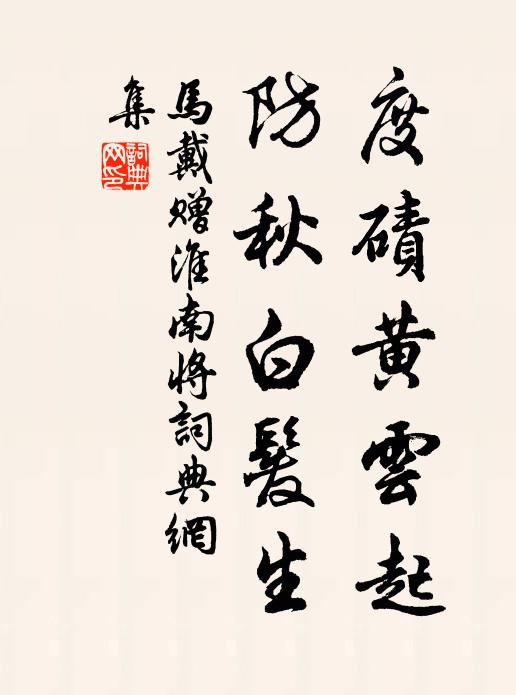 度磧黃雲起
防秋白髮生
馬戴贈淮南將詞典網
集
詞典
网印